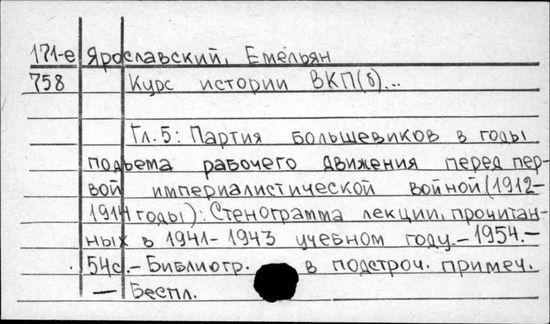 171-е Ярославский, Емельян
758 Курс истории ВКП(б)...
Гл. 5: Партия большевиков в годы
подъема рабочего движения перед пер-
вой империалистической войной (1912-
1914 годы): Стенограмма лекции, прочитан-
ных в 1941-1943 учебном году. - 1954. -
54с. - Библиогр. в подстроч. примеч.
- Беспл.